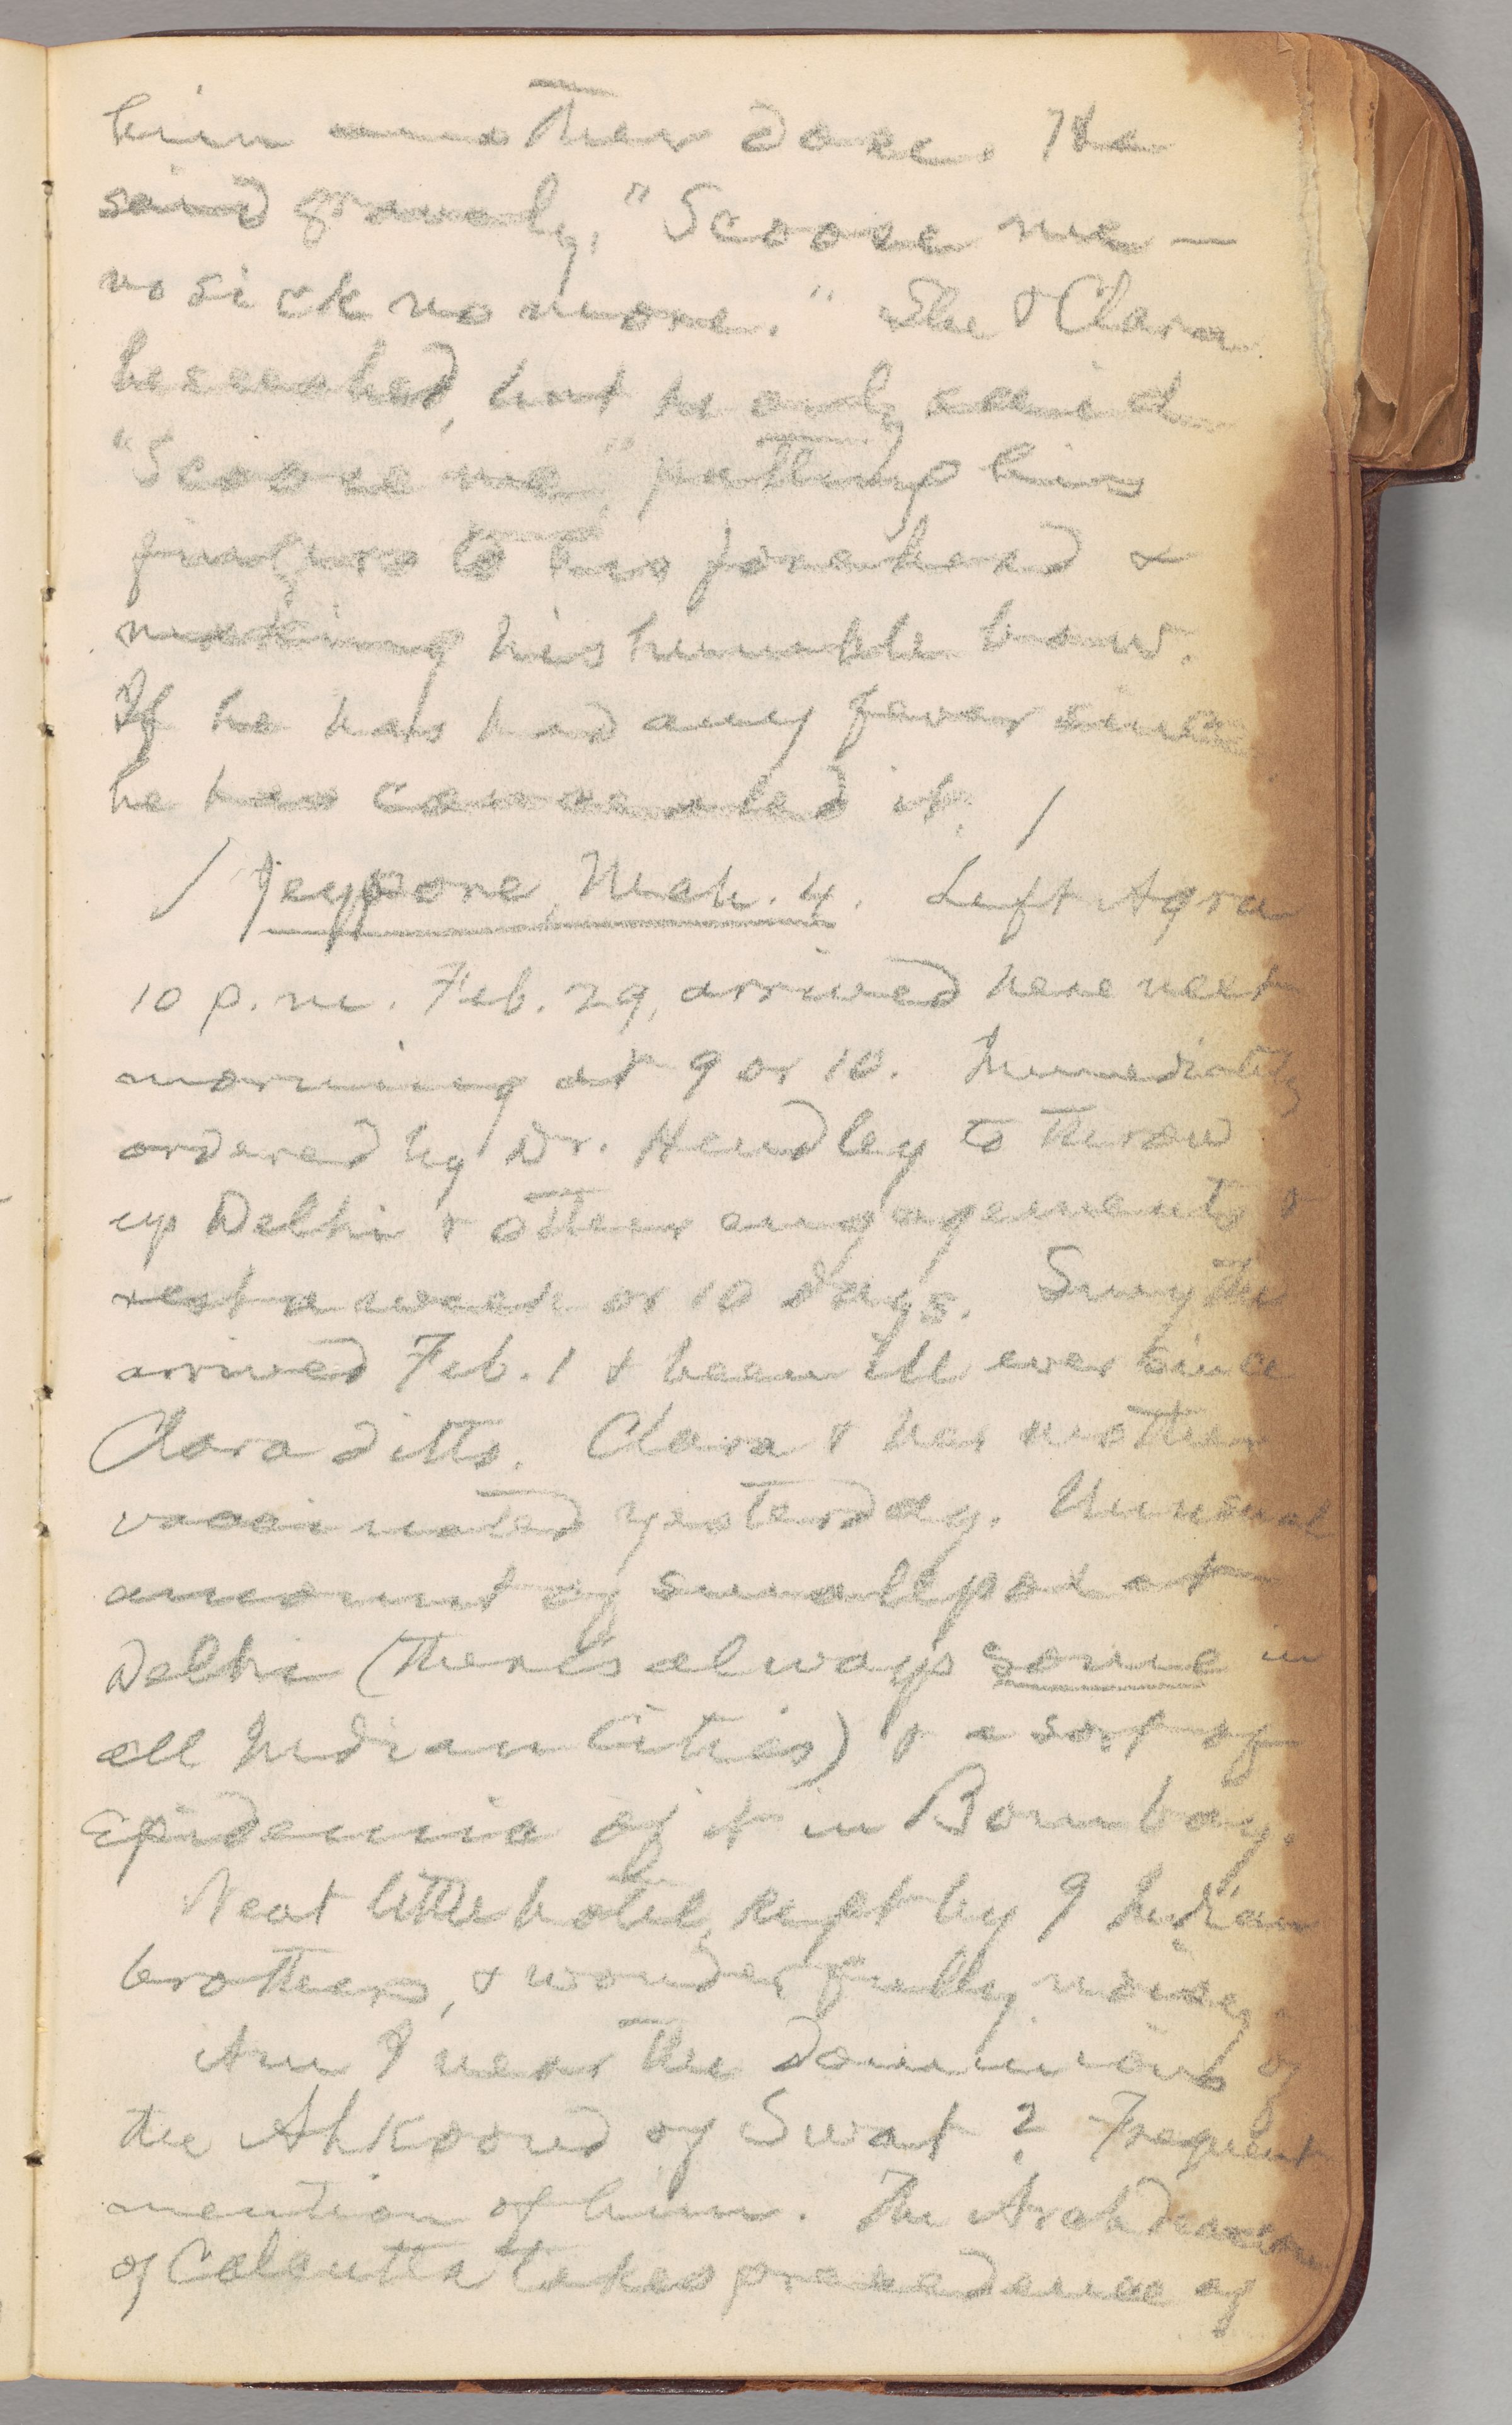 him another dose. He
said gravely, "Scoose me —
no sick no more." She & Clara
beseeched, but he only said
"Scoose me," putting his
fingers to his forehead &
making his humble bow.
If he has had any fever since
he has concealed it. /
/ Jeypore, Mch. 4. Left Agra
10 p.m. Feb. 29, arrived here next
morning at 9 or 10. Immediately
ordered by Dr. Hendley to throw
up Delhi & other engagements &
rest a week or 10 days. Smythe
arrived Feb. 1 & been ill ever since
Clara ditto. Clara & her mother
vaccinated yesterday. Unusual
amount of smallpox at
Delhi (there's always some in
all Indian Cities) & a sort of
Epidemic of it in Bombay.
Neat little hotel, kept by 9 Indian
brothers, & wonderfully noisy.
Am I near the dominions of
the Ahkoond of Swat? Frequent
mention of him. The Archdeacon
of Calcutta takes precedence of